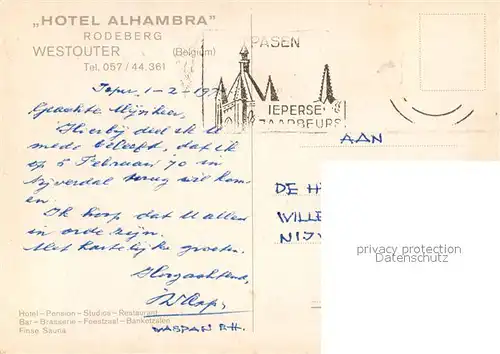 „HOTEL ALHAMBRA"
RODEBERG
WESTOUTER (Belgium)
Tel. 057/44.361
PASEN
IEPERSE
JAARBEURS
Ieper 1-2-197
Geachte Mijnheer,
Hierbij deel ik U
mede beleefd, dat ik
op 5 Februari 70 in
Nijverdal terug wil kom-
en.
Ik hoop dat U allen
in orde zijn.
Met hartelijke groeten.
Hoogachtend,
DASPAN P.H.
AAN
DE H
WILLE
NIJV
privacy protection
AnsichtskartenHandel.com
Hotel – Pension – Studios – Restaurant
Bar – Brasserie – Feestzaal – Banketzalen
Finse Sauna